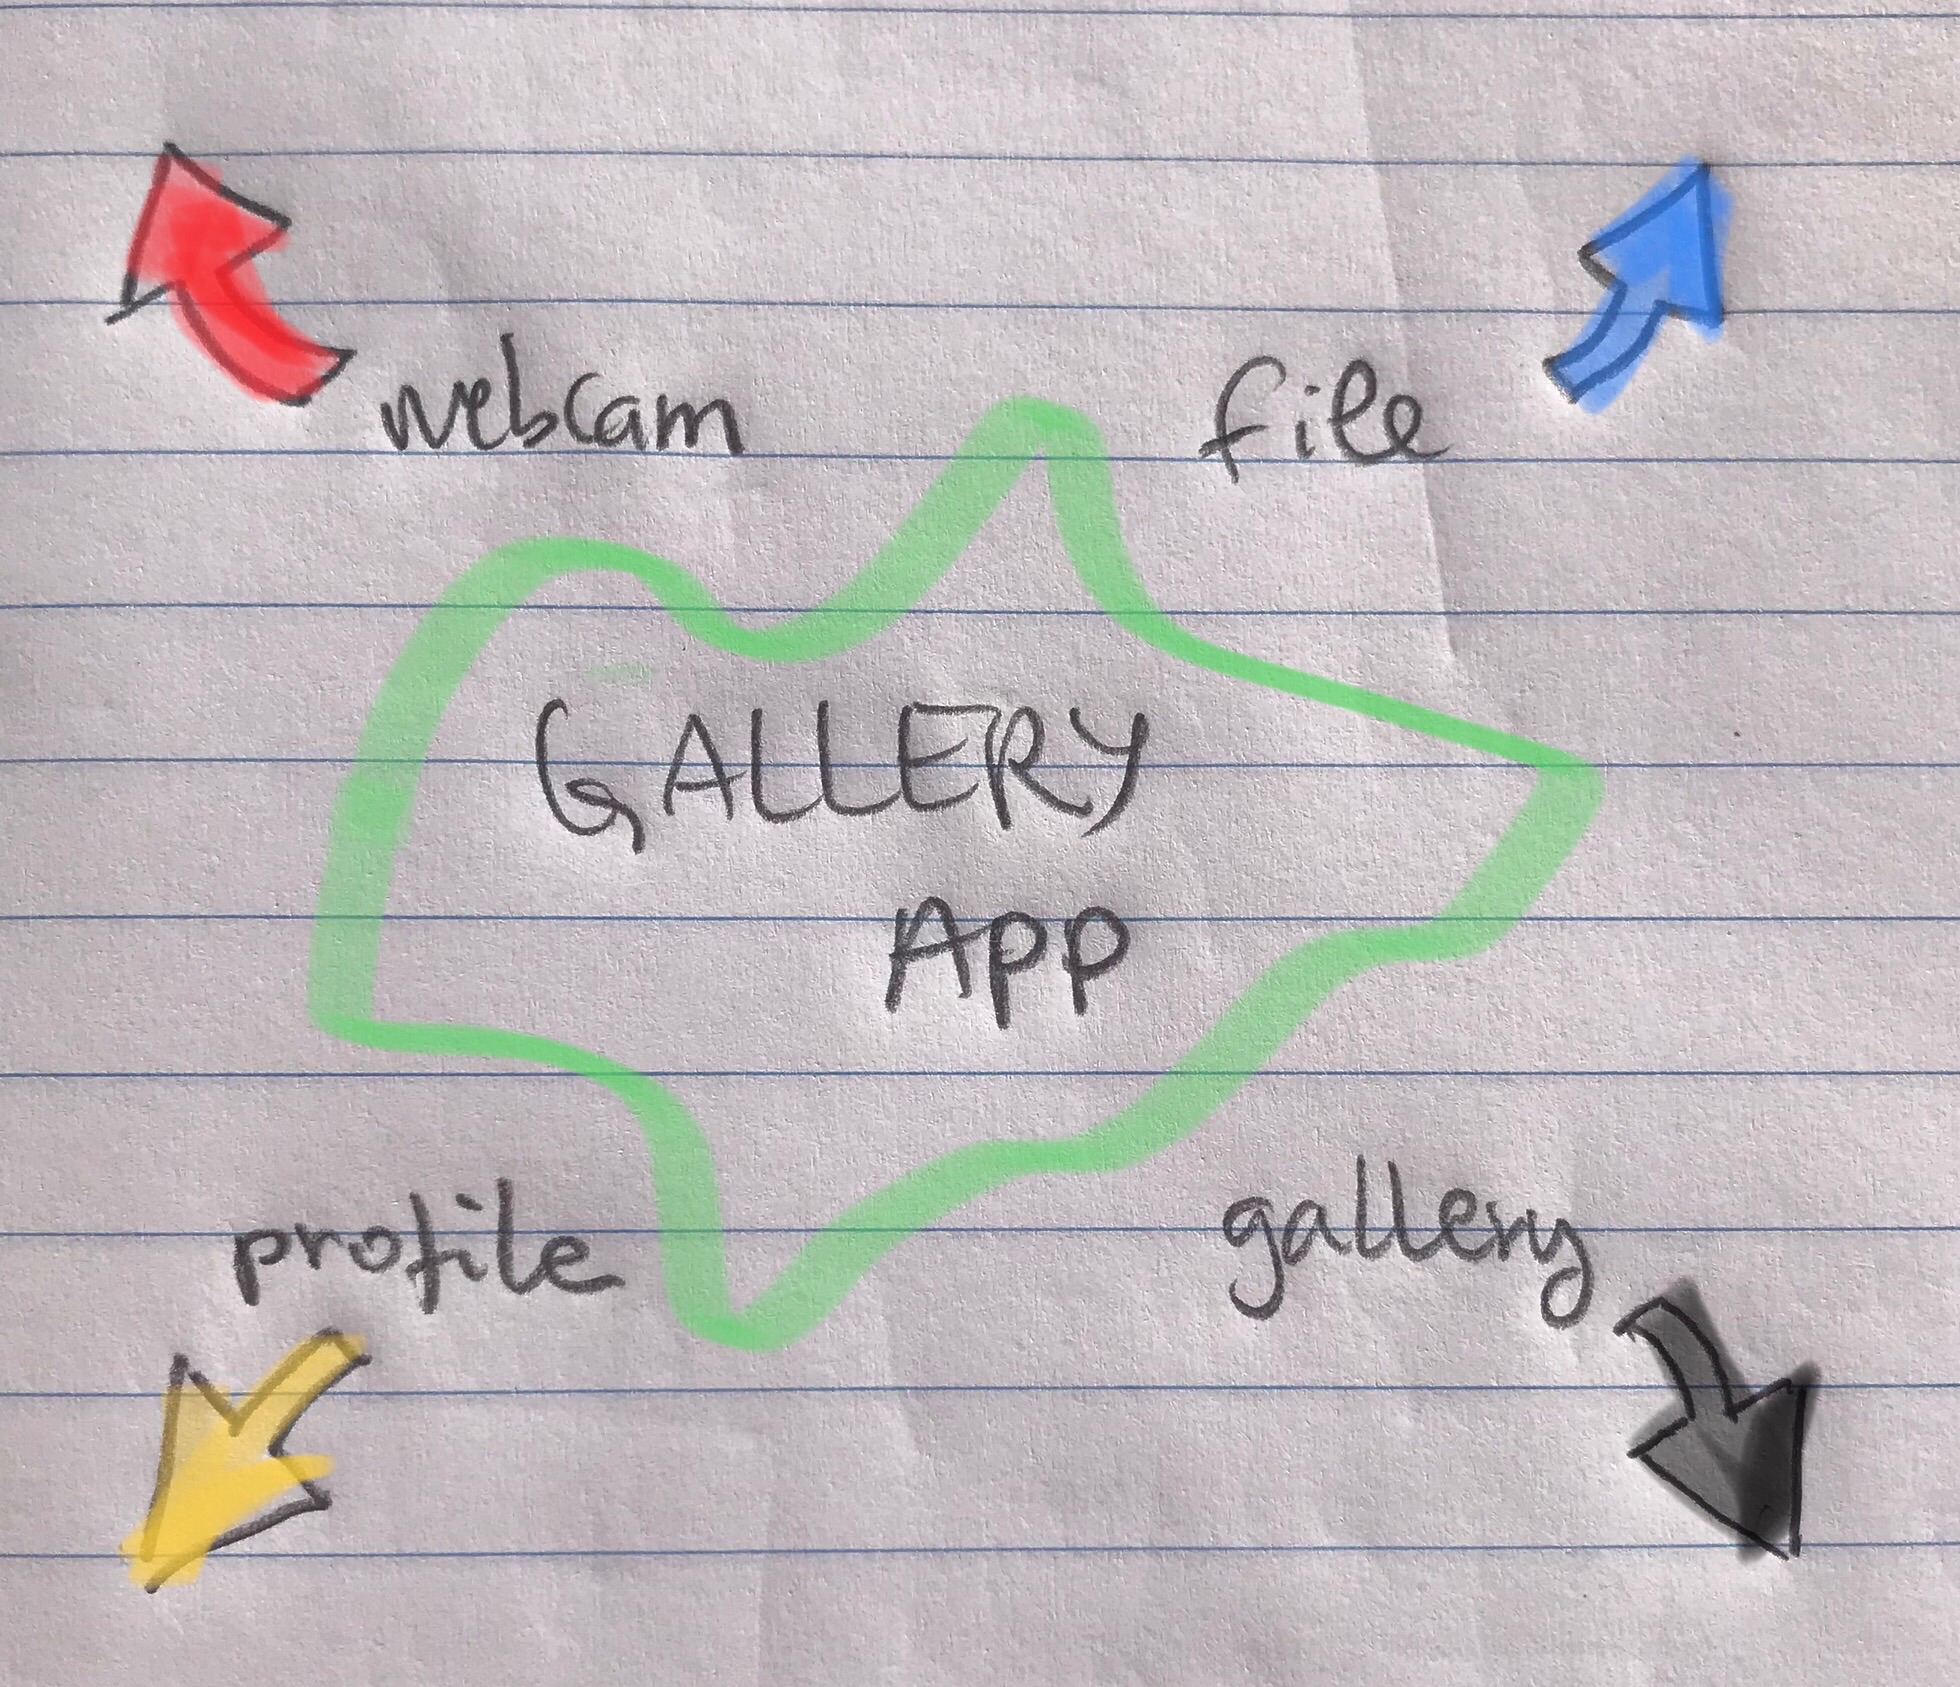 webcam
file
GALLERY
APP
profile
gallery